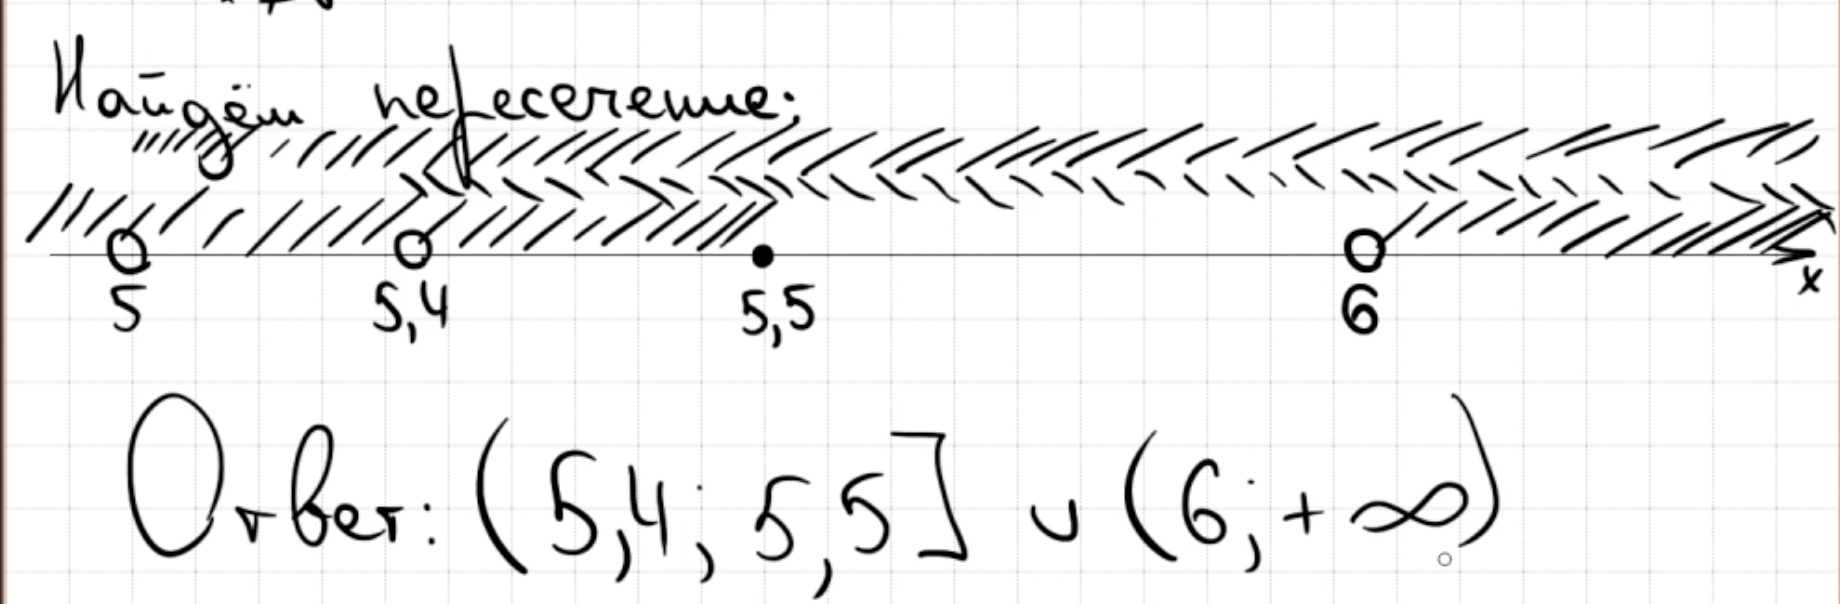 Найдём пересечение:
5 5,4 5,5 6 x
Ответ: (5,4; 5,5] ∪ (6; +∞)